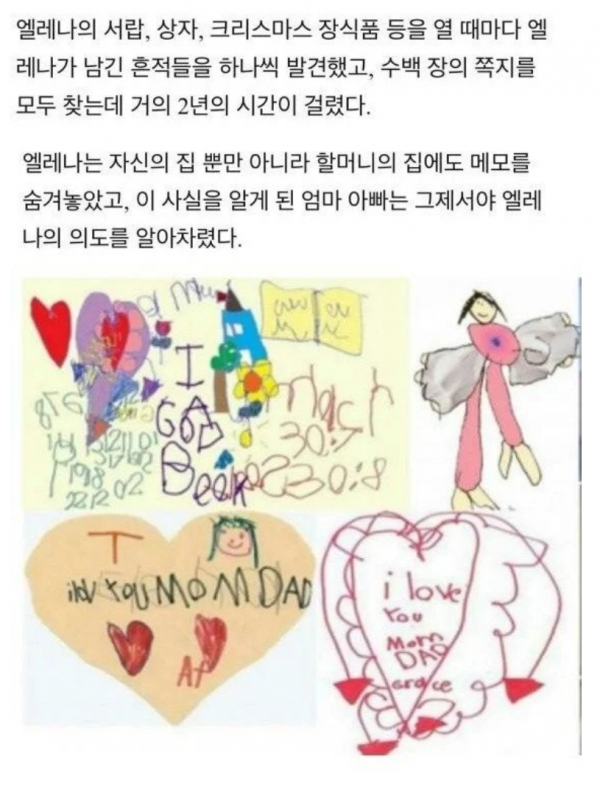 엘레나의 서랍, 상자, 크리스마스 장식품 등을 열 때마다 엘
레나가 남긴 흔적들을 하나씩 발견했고, 수백 장의 쪽지를
모두 찾는데 거의 2년의 시간이 걸렸다.
엘레나는 자신의 집 뿐만 아니라 할머니의 집에도 메모를
숨겨놓았고, 이 사실을 알게 된 엄마 아빠는 그제서야 엘레
나의 의도를 알아차렸다.
I
30:8
I
YOU MOM DAD
i love
You
Mom
DAD
Grace